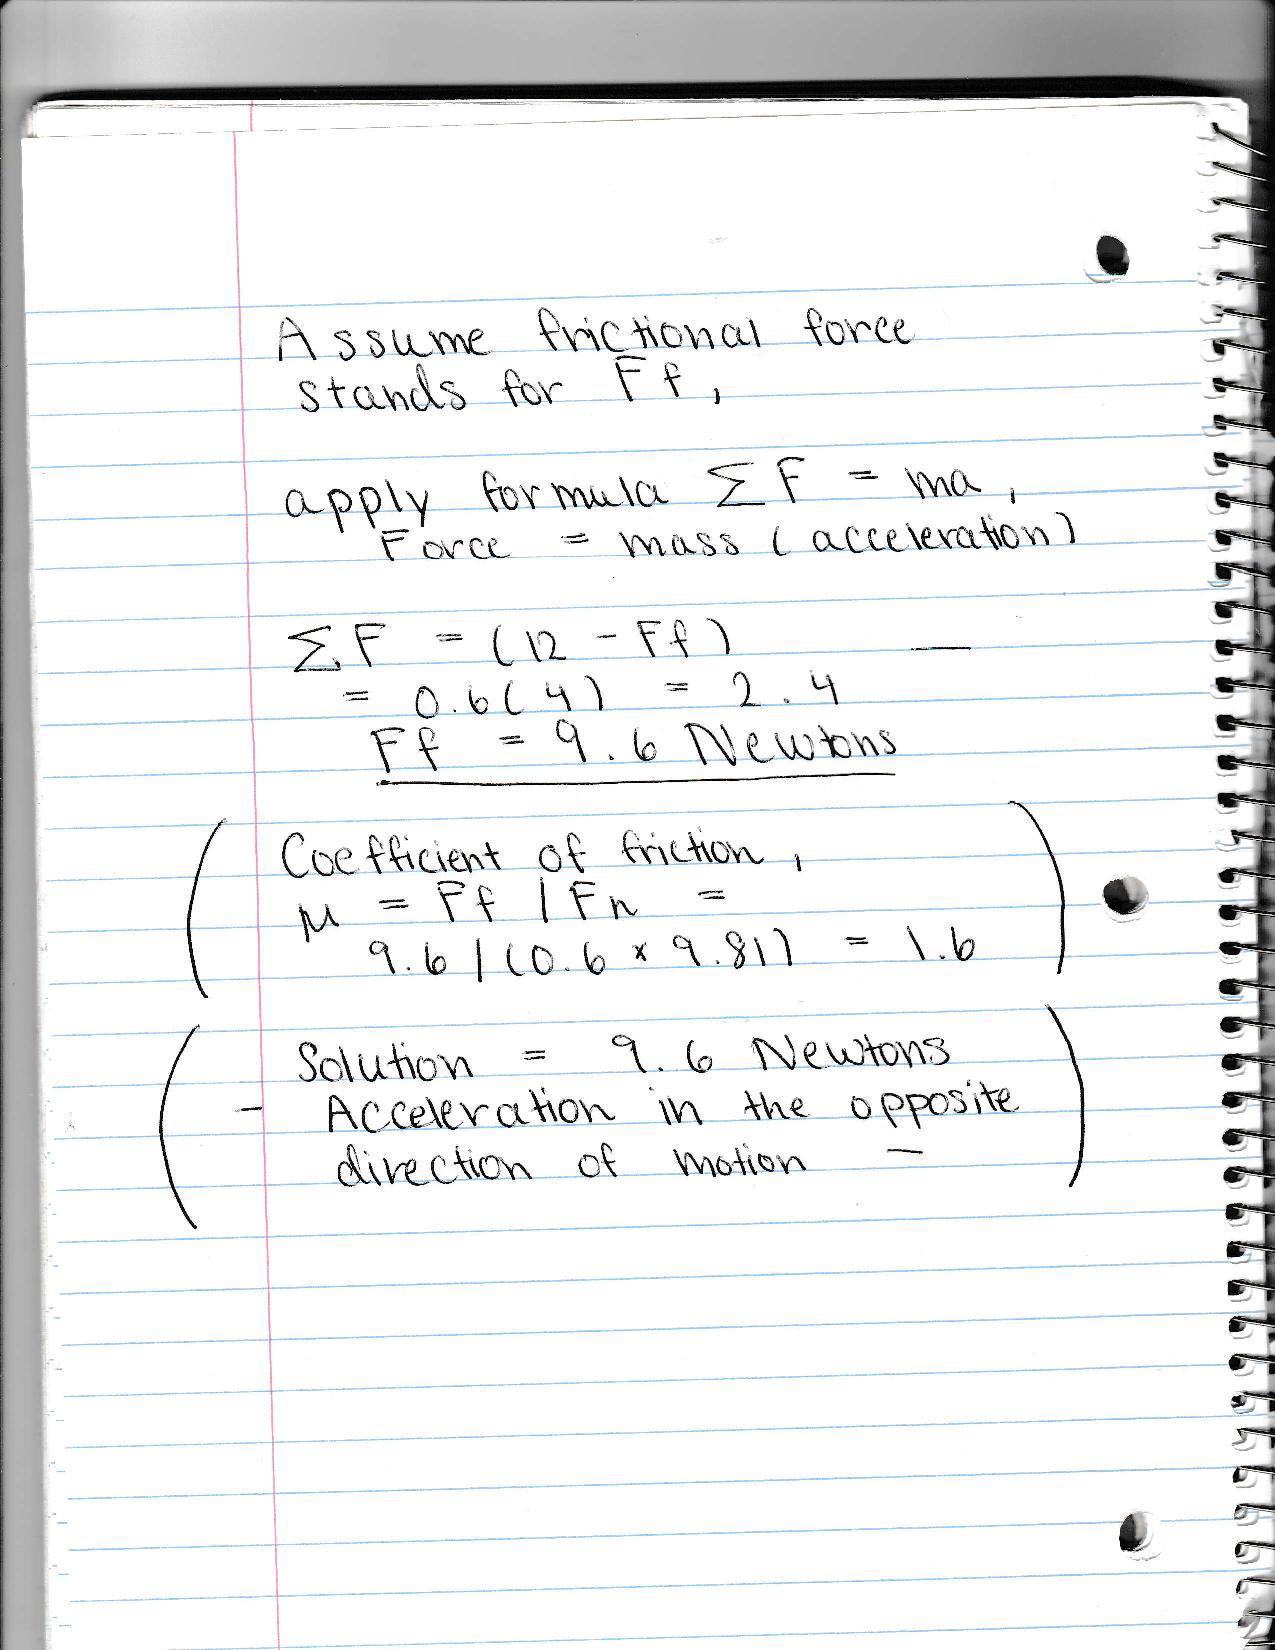 Assume frictional force
stands for Ff,
apply formula ΣF = ma,
Force = mass (acceleration)
ΣF = (12 - Ff) —
= 0.6(4) = 2.4
Ff = 9.6 Newtons
(Coefficient of friction,
μ = F / Fn =
9.6/(0.6 x 9.81) = 1.6)
(Solution = 9.6 Newtons
- Acceleration in the opposite
direction of motion -)